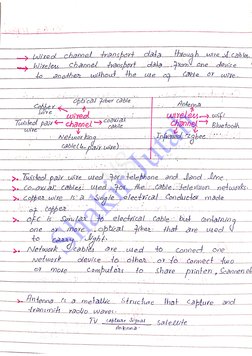 → Wired channel transport data through wire & cable
→ Wireless channel transport data from one device
to another without the use of cable or wire.
optical fiber cable
copper wire
Twisted pair wire
wired channel
coaxial cable
Networking cable (4 pair wire)
Antenna
wireless channel
wifi
Bluetooth
Infrared
→ Twisted pair wire used for telephone and land line
→ co-axial cables used for the cable television networks.
→ copper wire is a single electrical conductor made
of copper.
→ OFC is similar to electrical cable but containing
one or more optical fiber that are used
to carry light.
→ Network cables are used to connect one
network device to other or to connect two
or more computers to share printer, scanner etc
→ Antenna is a metallic structure that capture and
transmit radio waves.
TV capture signal satellite
Antenna